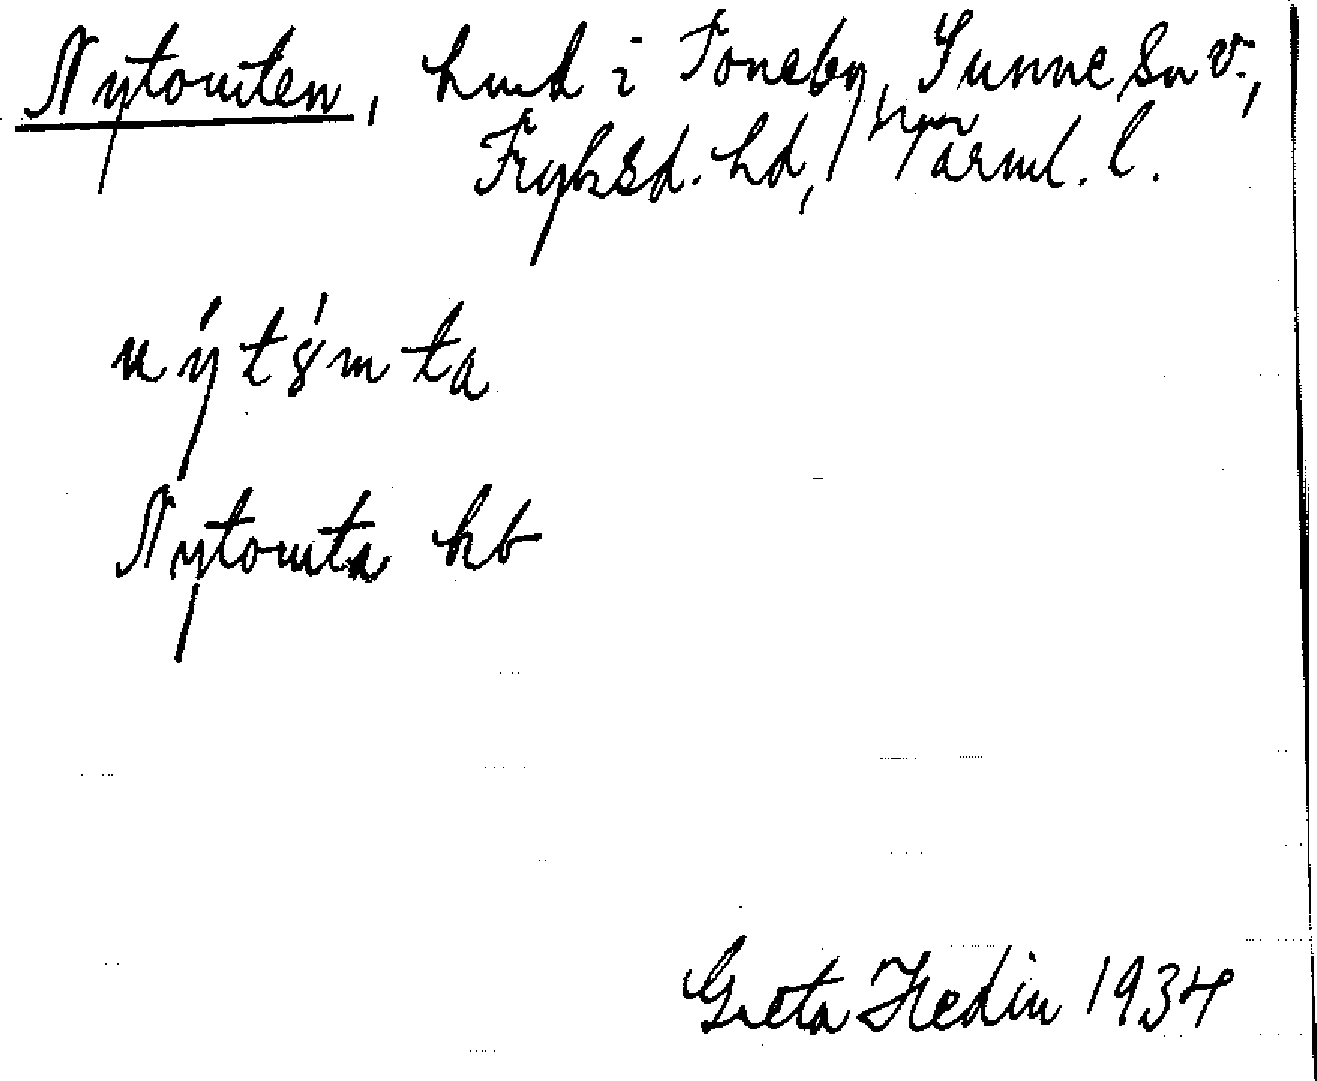 Nytomten, hmd i Toneby, Sunne sn v.,
Fryksd. hd, Värml. l.
nýtǿmta
Nytomta hb
Greta Hedin 1934